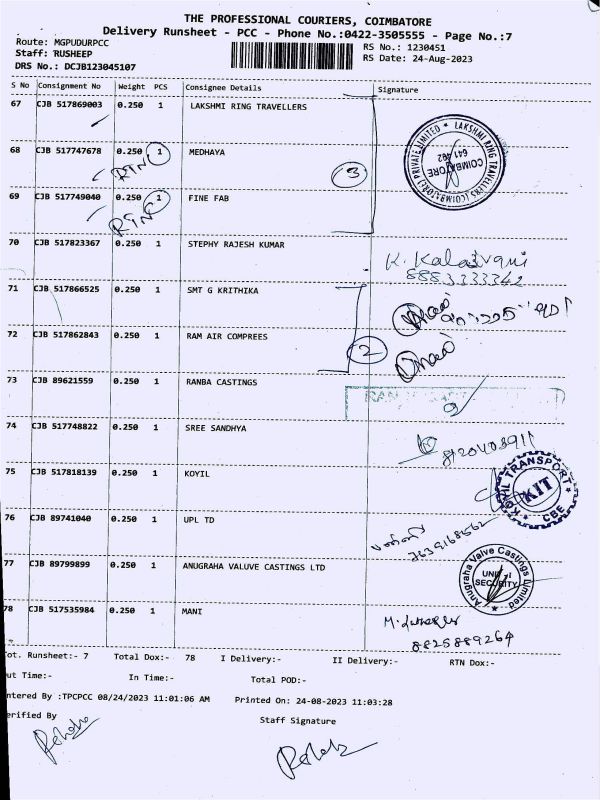 THE PROFESSIONAL COURIERS, COIMBATORE
Delivery Runsheet - PCC - Phone No.:0422-3505555 - Page No.:7
Route: MGPUDURPCC
RS No.: 1230451
Staff: RUSHEEP
RS Date: 24-Aug-2023
DRS No.: DCJB123045107
S No Consignment No Weight PCS Consignee Details Signature
67 CJB 517869003 0.250 1 LAKSHMI RING TRAVELLERS
LAKSHMI RING TRAVELLERS (COIMBATORE) PRIVATE LIMITED
COIMBATORE
68 CJB 517747678 0.250 1 MEDHAYA
RTN
3
69 CJB 517749040 0.250 1 FINE FAB
RTN
70 CJB 517823367 0.250 1 STEPHY RAJESH KUMAR
K. Kalaivani
8883333342
71 CJB 517866525 0.250 1 SMT G KRITHIKA
72 CJB 517862843 0.250 1 RAM AIR COMPREES
2
73 CJB 89621559 0.250 1 RANBA CASTINGS
74 CJB 517748822 0.250 1 SREE SANDHYA
75 CJB 517818139 0.250 1 KOYIL
KOYIL TRANSPORT
KIT
CBE
76 CJB 89741040 0.250 1 UPL TD
77 CJB 89799899 0.250 1 ANUGRAHA VALUVE CASTINGS LTD
Anugraha Valve Castings Limited
SECURITY
78 CJB 517535984 0.250 1 MANI
8825889264
ot. Runsheet:- 7 Total Dox:- 78 I Delivery:- II Delivery:- RTN Dox:-
ut Time:- In Time:- Total POD:-
ntered By :TPCPCC 08/24/2023 11:01:06 AM Printed On: 24-08-2023 11:03:28
erified By Staff Signature